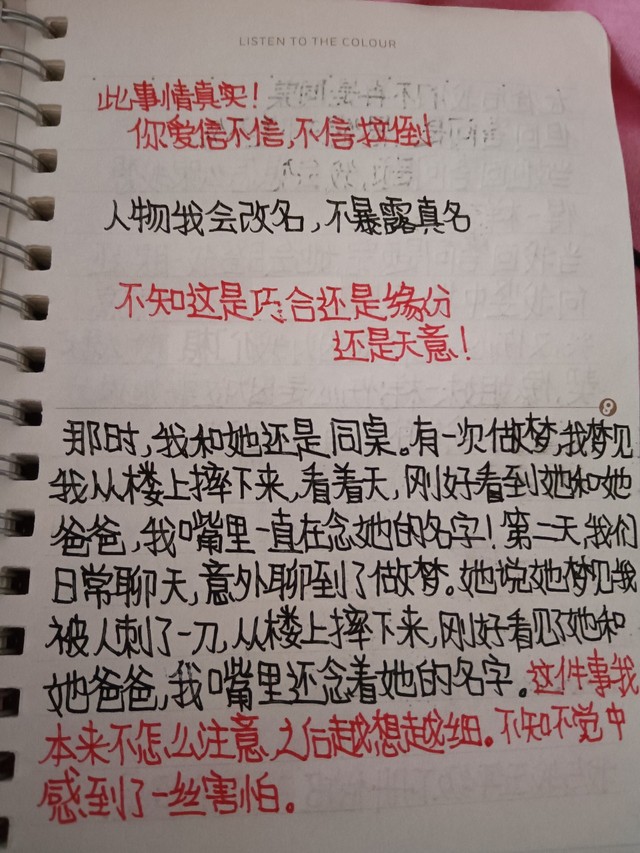 LISTEN TO THE COLOUR
此事情真实！
你爱信不信，不信拉倒
人物我会改名，不暴露真名
不知这是巧合还是缘份
还是天意！
那时，我和她还是同桌。有一次做梦，我梦见
我从楼上摔下来，看着天，刚好看到她和她
爸爸，我嘴里一直在念她的名字！第二天，我们
日常聊天，意外聊到了做梦。她说她梦见我
被人刺了一刀，从楼上摔下来，刚好看见了她和
她爸爸，我嘴里还念着她的名字。这件事我
本来不怎么注意，之后越想越细。不知不觉中
感到了一丝害怕。